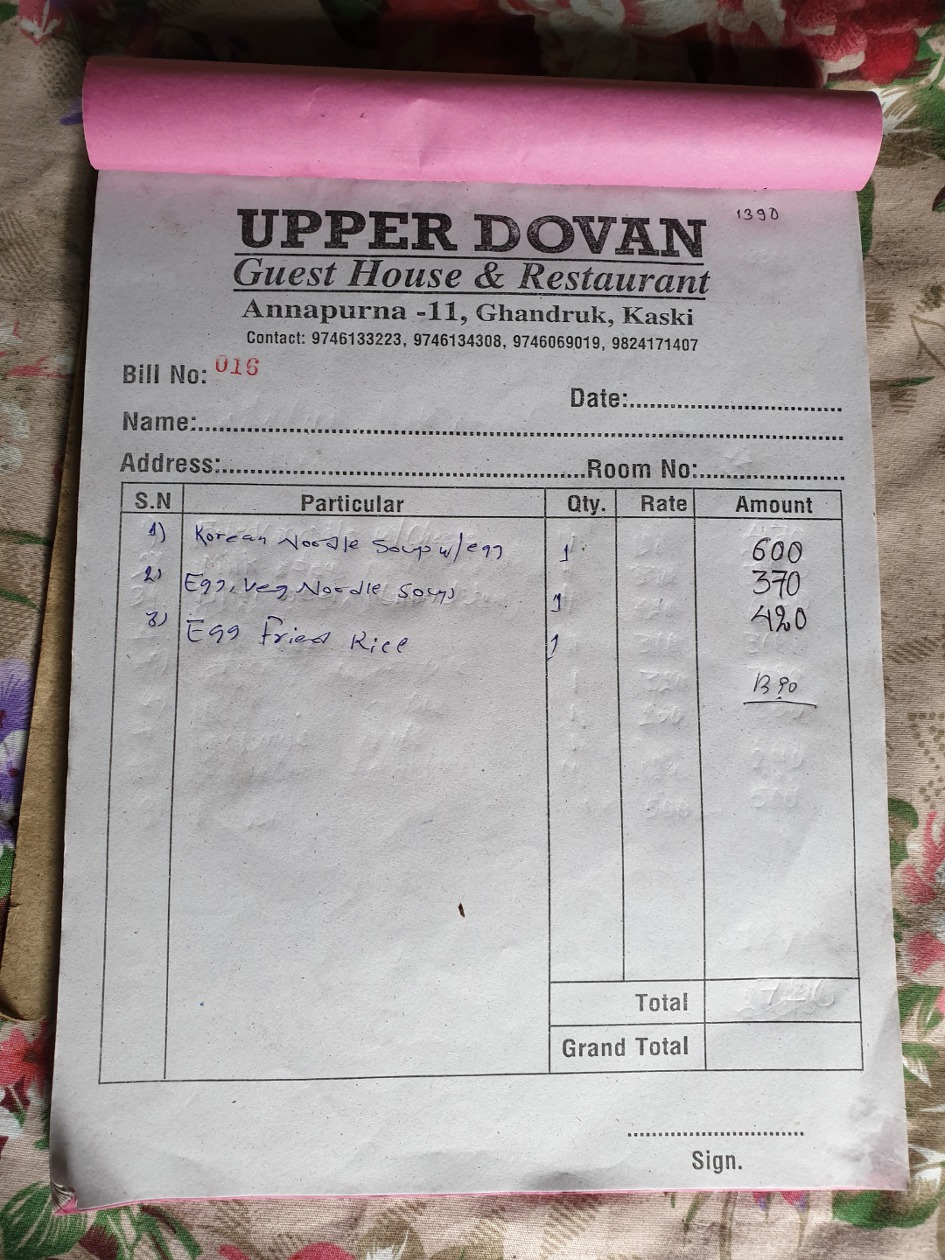 1390
UPPER DOVAN
Guest House & Restaurant
Annapurna -11, Ghandruk, Kaski
Contact: 9746133223, 9746134308, 9746069019, 9824171407
Bill No: 016
Date:
Name:
Address: Room No:
S.N Particular Qty. Rate Amount
1) Korean Noodle Soup w/egg 1 600
2) Egg, Veg Noodle Soup 1 370
3) Egg Fried Rice 1 420
1390
Total
Grand Total
Sign.